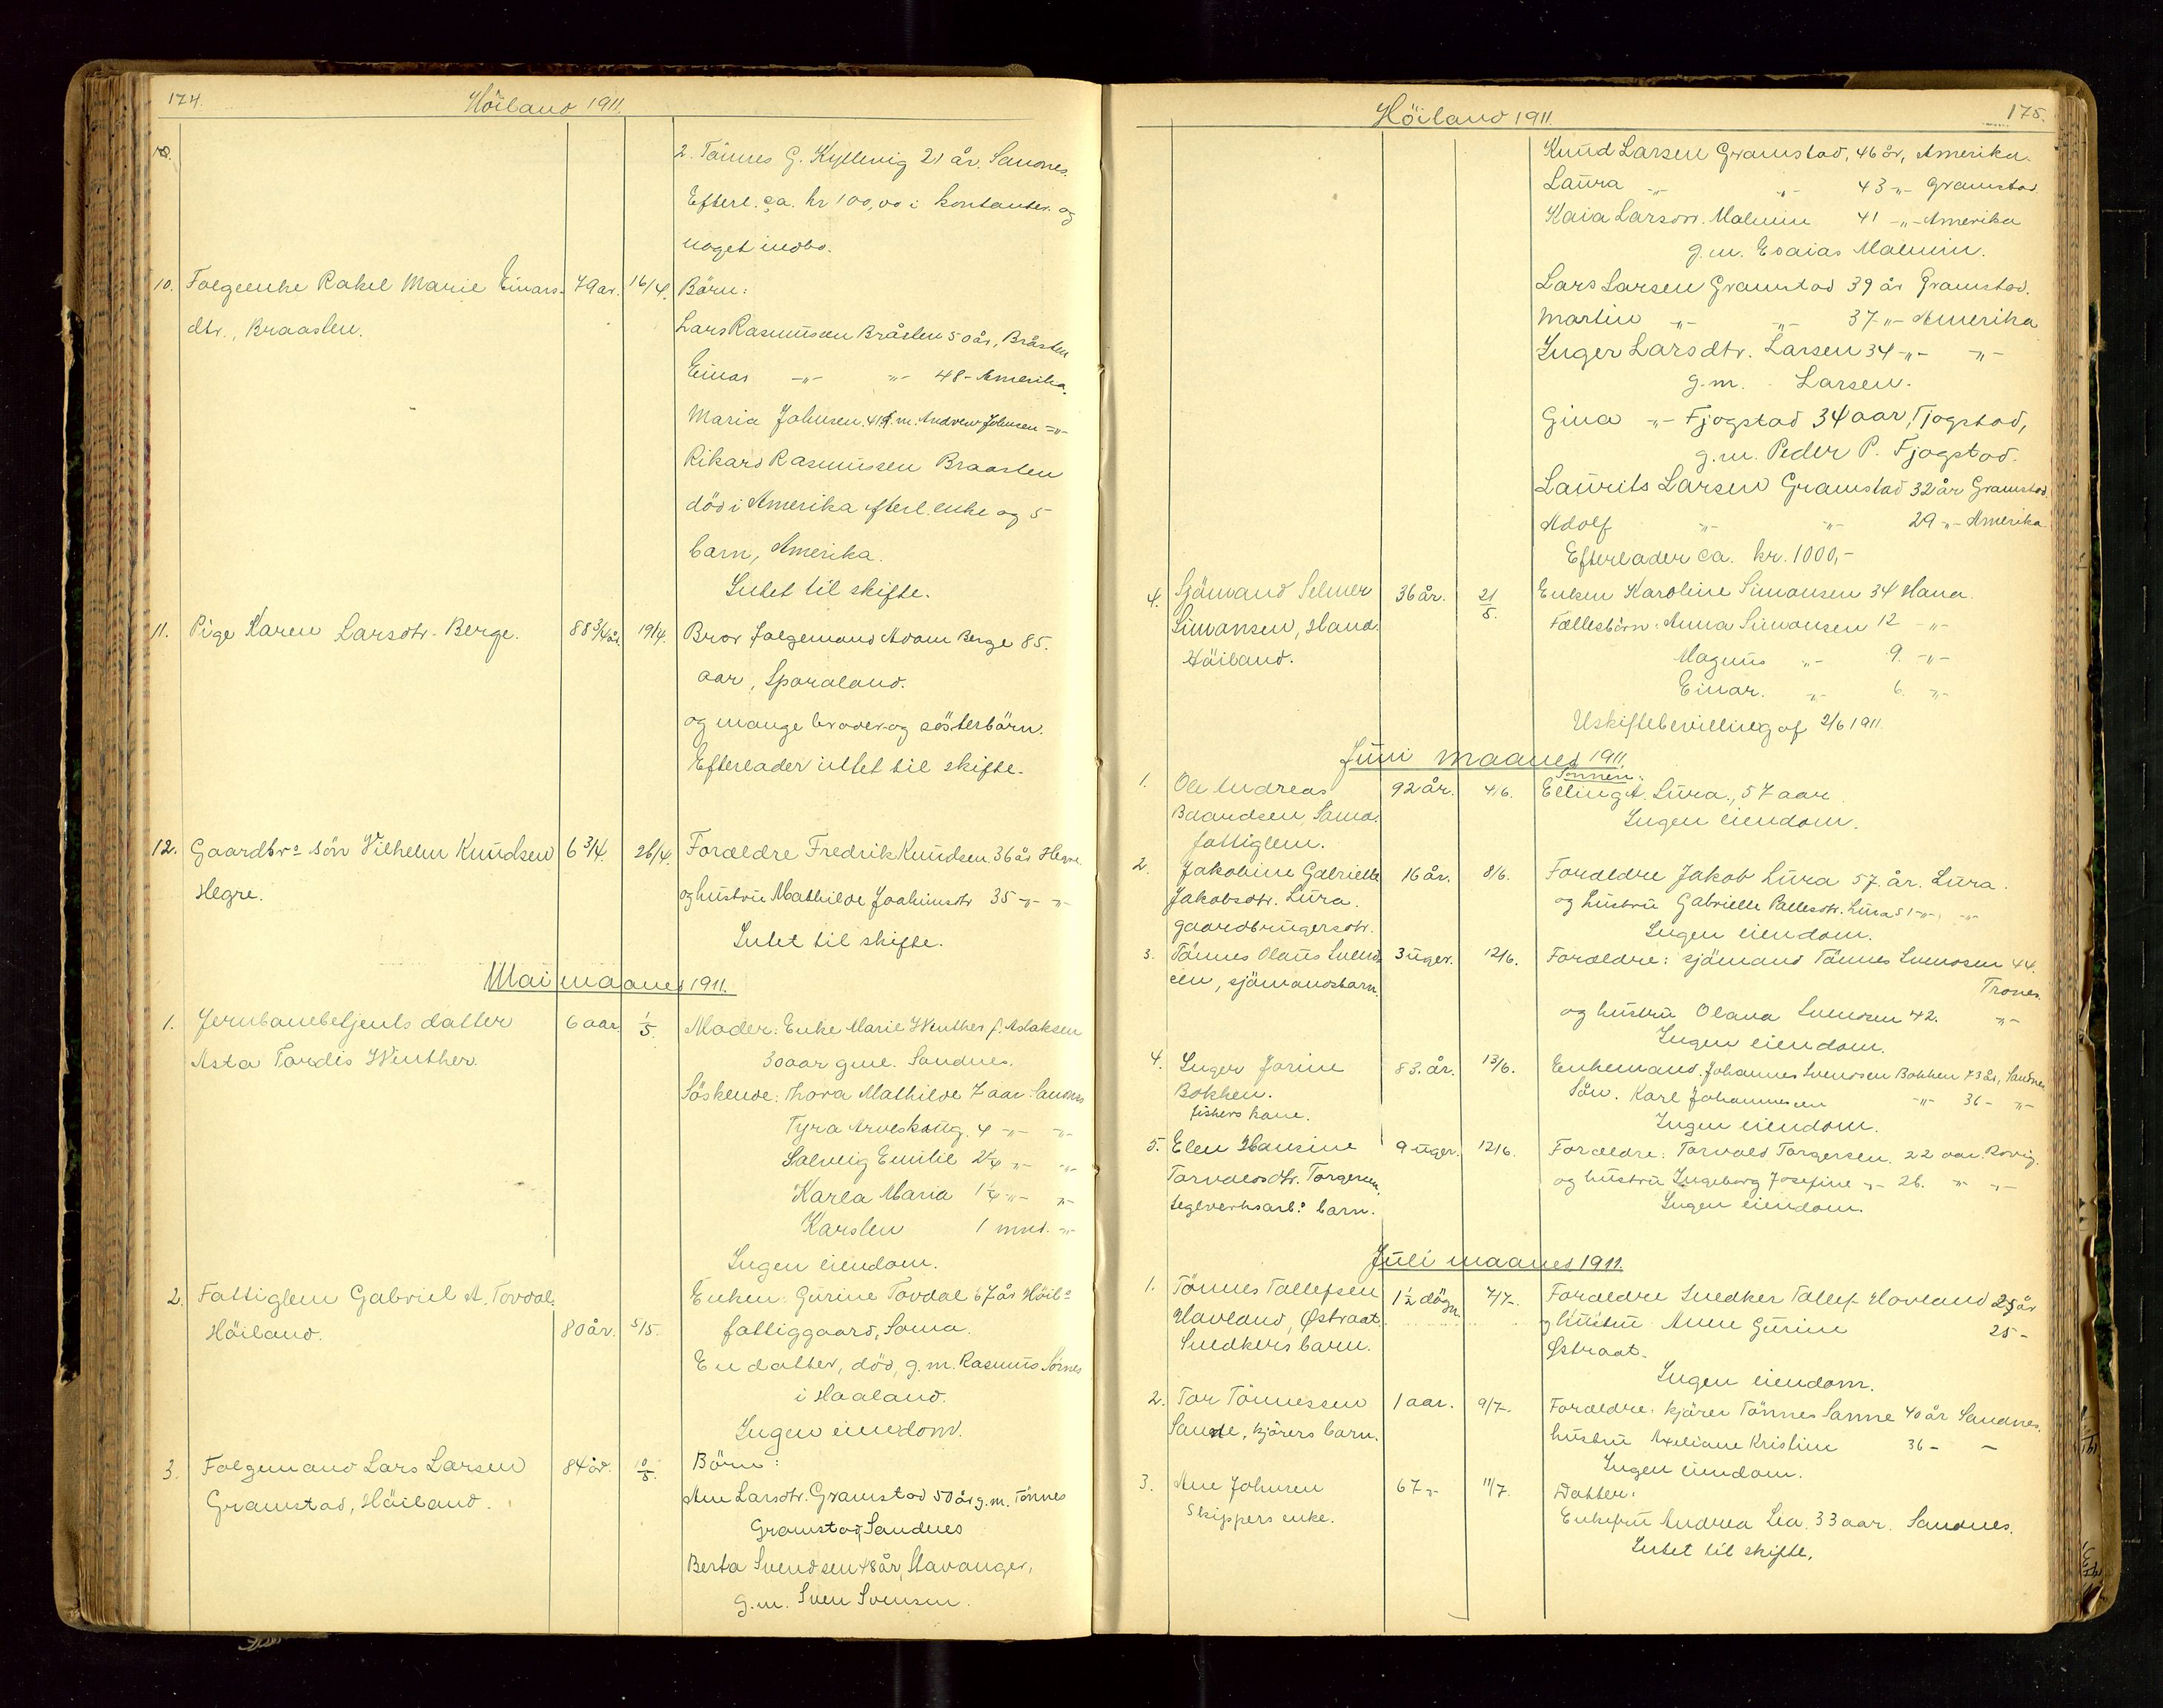 174.
Höiland 1911.
2. Tönnes G. Kyllevig 21 år. Sandnes.
Efterl. ca. kr 100,00 i kontanter og
noget indbo.
10. Folgeenke Rakel Marie Einars- 79 ar. 16/4. Börn:
dtr., Braasten. Lars Rasmussen Bråsten 50 år, Bråsten
Einar -"- -"- 48 - Amerika.
Maria Johnsen. 41 g.m. Andrew Johnsen -"-
Rikard Rasmussen Braasten
död i Amerika efterl. enke og 5
barn, Amerika.
Intet til skifte.
11. Pige Karen Larsdtr. Berge. 88 3/4 år. 19/4. Bror folgemand Adam Berge 85.
aar, Sporaland.
og mange broder- og sösterbörn.
Efterlader intet til skifte.
12. Gaardbrs sön Vilhelm Knudsen 6 3/4. 26/4. Foraldre Fredrik Knudsen. 36 år Hegre.
Hegre. og hustru Mathilde Joakimsdtr 35 -"- -"-
Intet til skifte.
Mai maaned 1911.
1. Jernbanebetjents datter 6 aar. 1/5. Moder: Enke Marie Winther f. Aslaksen
Asta Tordis Winther. 30 aar gml. Sandnes.
Söskende: Thora Mathilde 7 aar. Sandnes
Tyra 4 -"- -"-
Solveig Emilie 2 1/4 -"- -"-
Karla Maria 1 1/4 -"- -"-
Karsten 1 mnd. -"-
Ingen eiendom.
2. Fattiglem Gabriel A. Tovdal. Enken: Gurine Tovdal 67 år Höil-
Höiland. 80 år. 5/5. fattiggaard, Soma.
En datter, död, g.m. Rasmus Sörnes
i Haaland.
Ingen eiendom.
3. Folgemand Lars Larsen 84 år. 10/5. Börn:
Gramstad, Höiland. Ane Larsdtr. Gramstad 50 år g.m. Tönnes
Gramstad, Sandnes
Berta Svendsen 48 år, Stavanger,
g.m. Sven Svensen.
Höiland 1911.
175.
Knud Larsen Gramstad, 46 år, Amerika.
Laura -"- -"- 43 -"- Gramstad.
Kaia Larsdtr. Malmin 41 -"- Amerika
g.m. Esaias Malmin.
Lars Larsen Gramstad 39 år Gramstad.
Martin -"- -"- 37 -"- Amerika
Inger Larsdtr. Larsen 34 -"- -"-
g.m. - Larsen.
Gina -"- Fjogstad 34 aar, Fjogstad,
g.m. Peder P. Fjogstad.
Laurits Larsen Gramstad 32 år Gramstad.
Adolf -"- -"- 29 -"- Amerika.
Efterlader ca. kr. 1000,-
4. Sjömand Selmer 36 år. 21/5. Enken Karoline Simonsen 34 Hana.
Simonsen, Hana. Fællesbörn: Anna Simonsen 12 -"-
Höiland. Magnus -"- 9. -"-
Einar. -"- 6. -"-
Uskiftebevilling af 2/6 1911.
Juni maaned 1911.
Sönnen:
1. Ole Andreas 92 år. 4/6. Elling A. Lura., 57 aar.
Baardsen, Soma. Ingen eiendom.
fattiglem.
2. Jakobine Gabrielle 16 år. 8/6. Foraldre Jakob Lura 57. år. Lura.
Jakobsdtr. Lura. og hustru Gabrielle Pallesdtr. Lura 51 -"- -"-
gaardbrugersdtr. Ingen eiendom.
3. Tönnes Olaus Svend- 3 uger. 12/6. Foraldre: sjömand Tönnes Svendsen 44.
sen, sjömandsbarn. Trones.
og hustru Olava Svendsen 42. -"-
Ingen eiendom.
4. Inger Jorine 83. år. 13/6. Enkemand. Johannes Svendsen Bokken 73 år, Sandnes
Bokken. Sön. Karl Johannessen -"- 36 - -"-
fiskers kone. Ingen eiendom.
5. Elen Hansine 9 uger. 12/6. Foraldre: Torvald Torgersen. 22 aar Rovig.
Torvaldsdtr. Torgersen, og hustru Ingeborg Josefine -"- 26. -"- -"-
teglverksarb.s barn. Ingen eiendom.
Juli maaned 1911.
1. Tönnes Tollefsen 1 1/2 dögn. 7/7. Foraldre Snedker Tollef Hovland 25 år
Hovland, Østraat. og hustru Anne Gurine 25 -
Snedkers barn. Østraat.
Ingen eiendom.
2. Tor Tönnessen 1 aar. 9/7. Foraldre: kjörer Tönnes Sanne 40 år Sandnes.
Sanne, kjörers barn. hustru Kristine 36 - -
Ingen eiendom.
3. Ane Johnsen 67 -"- 11/7. Datter:
Skippers enke. Enkefru Andrea Lea. 33 aar. Sandnes.
Intet til skifte.